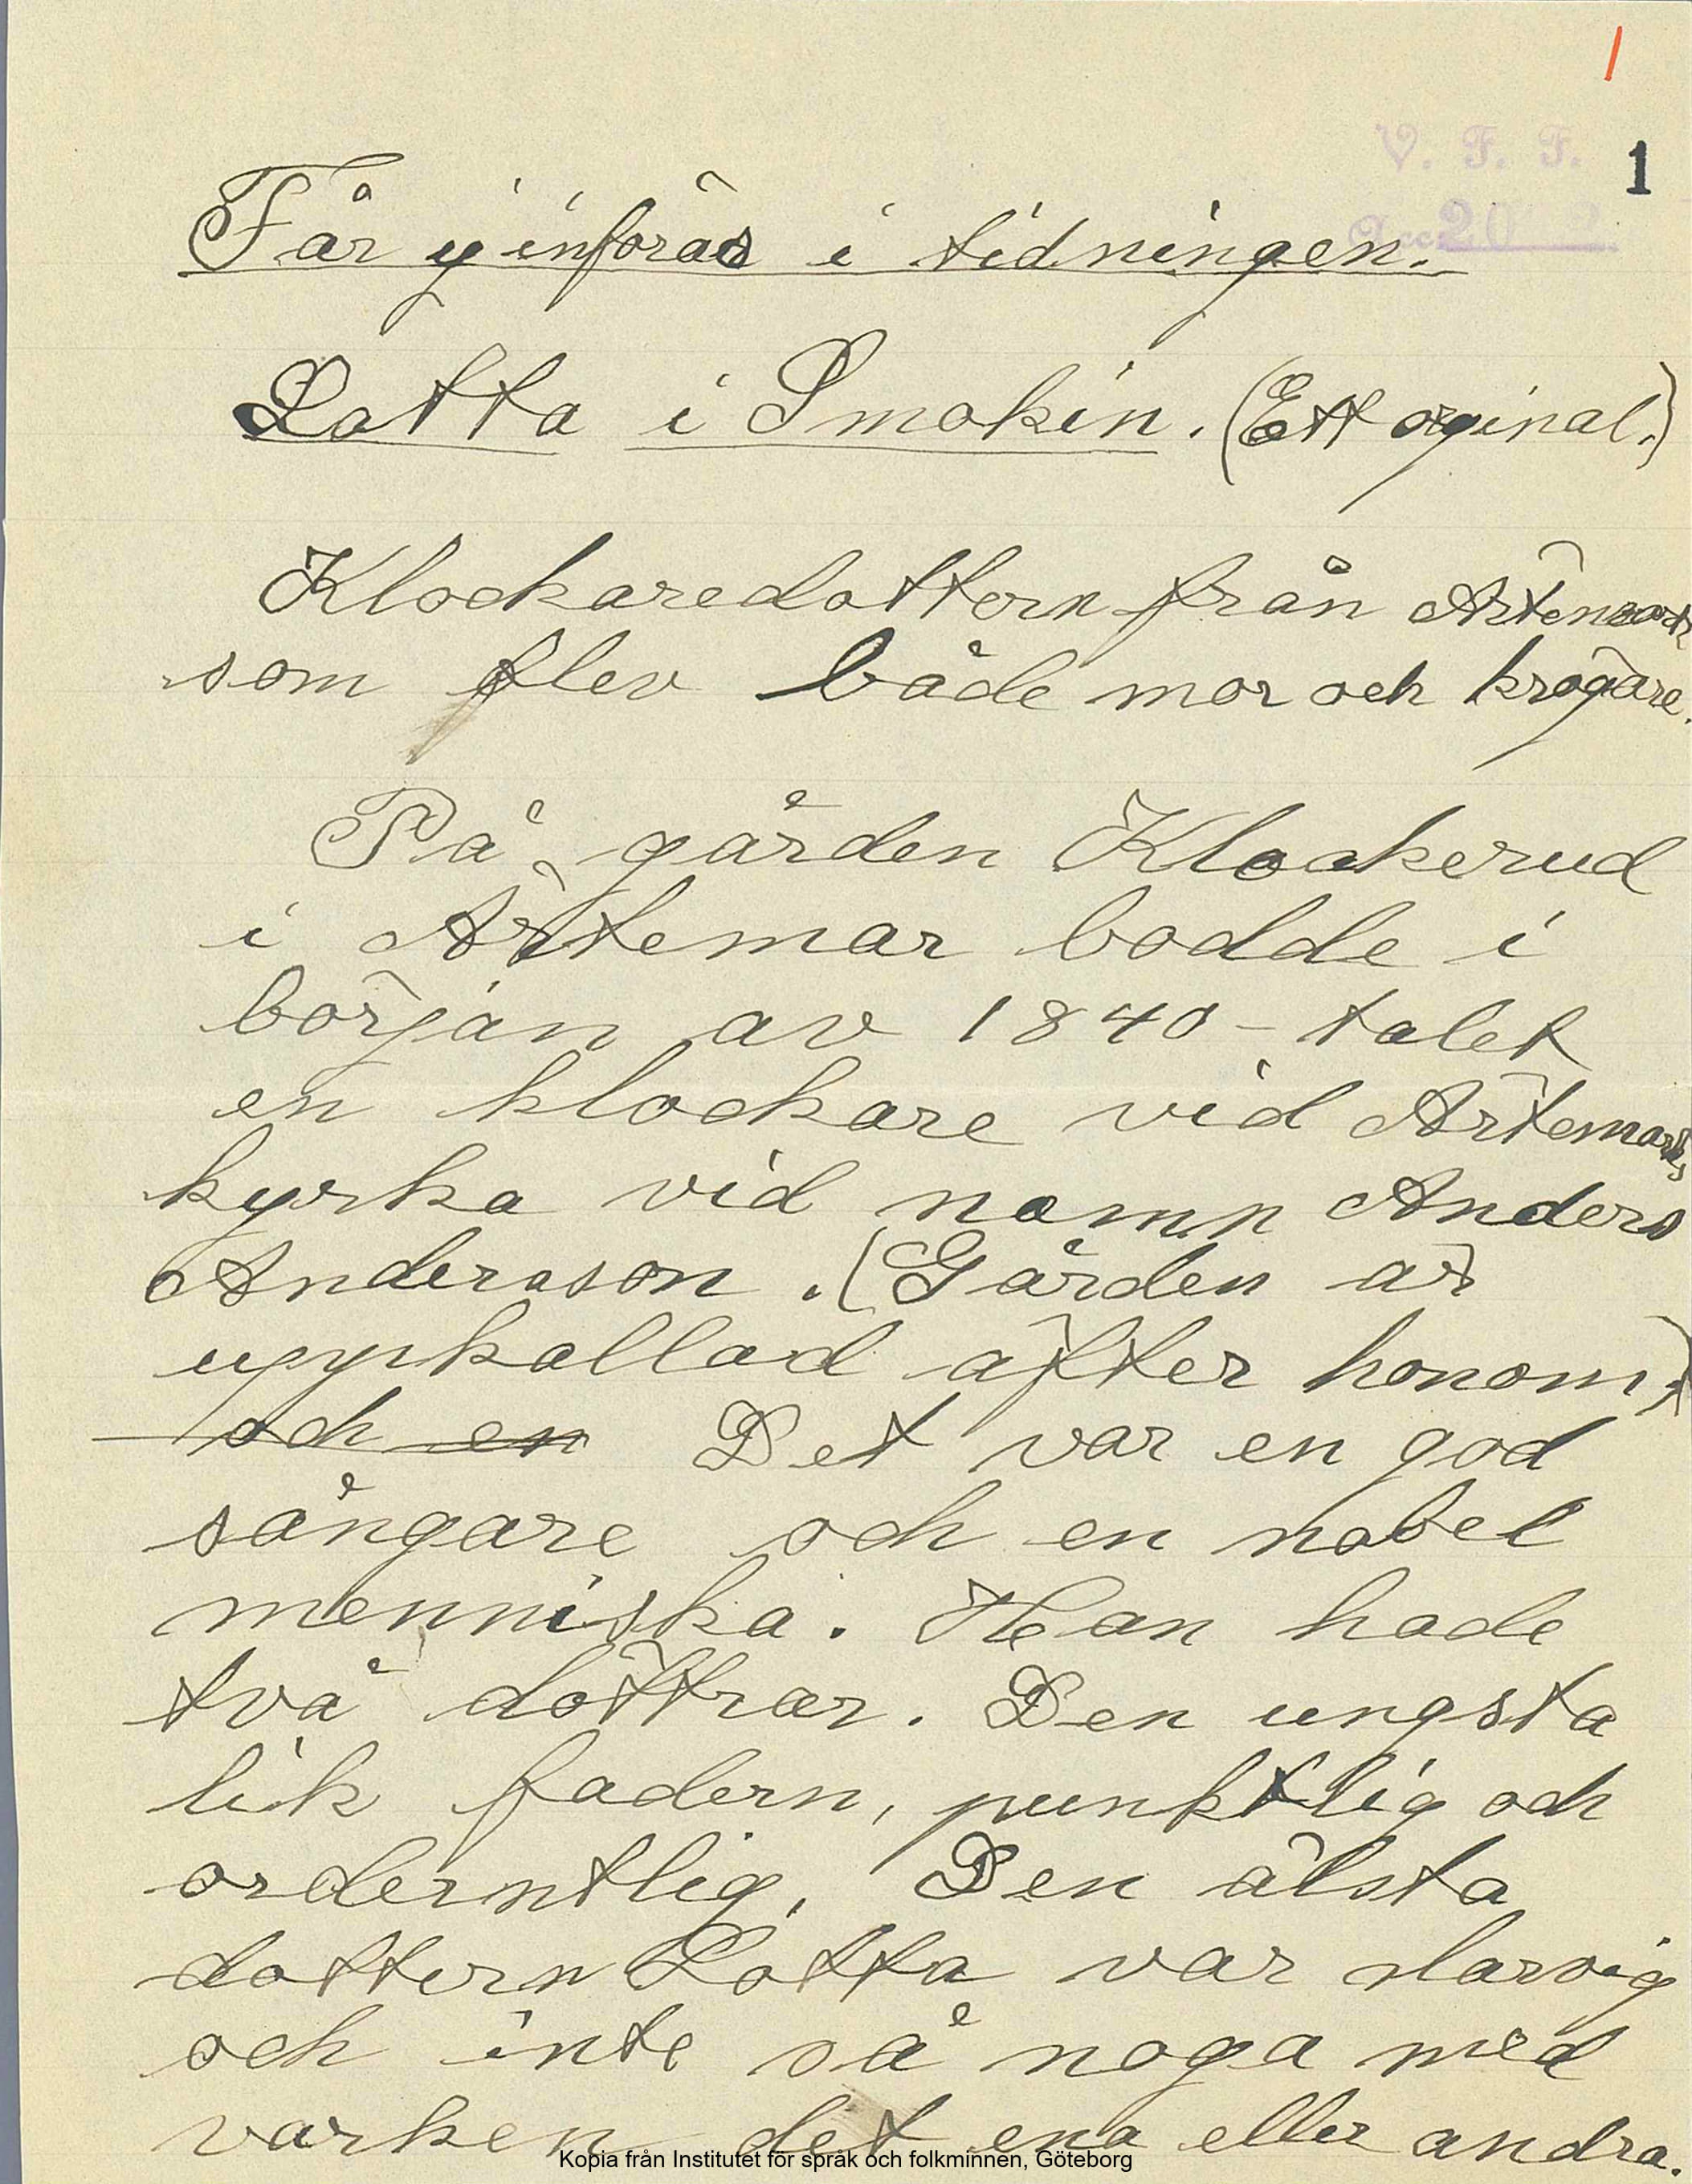 1
V. F. F.
1
Får ej införas i tidningen.
Lotta i Smokin. (Ett orginal.)
Klockaredottern från Ärtemark
som blev både mor och krögare.
På gården Klockerud
i Ärtemar bodde i
början av 1840-talet
en klockare vid Ärtemarks
kyrka vid namn Anders
Andersson. (Gården är
uppkallad äfter honom.)
och en Det var en god
sångare och en nobel
menniska. Han hade
två döttrar. Den yngsta
lik fadern, punktlig och
orderntlig. Den älsta
dottern Lotta var slarvig
och inte så noga med
varken det ena eller andra.
Kopia från Institutet för språk och folkminnen, Göteborg